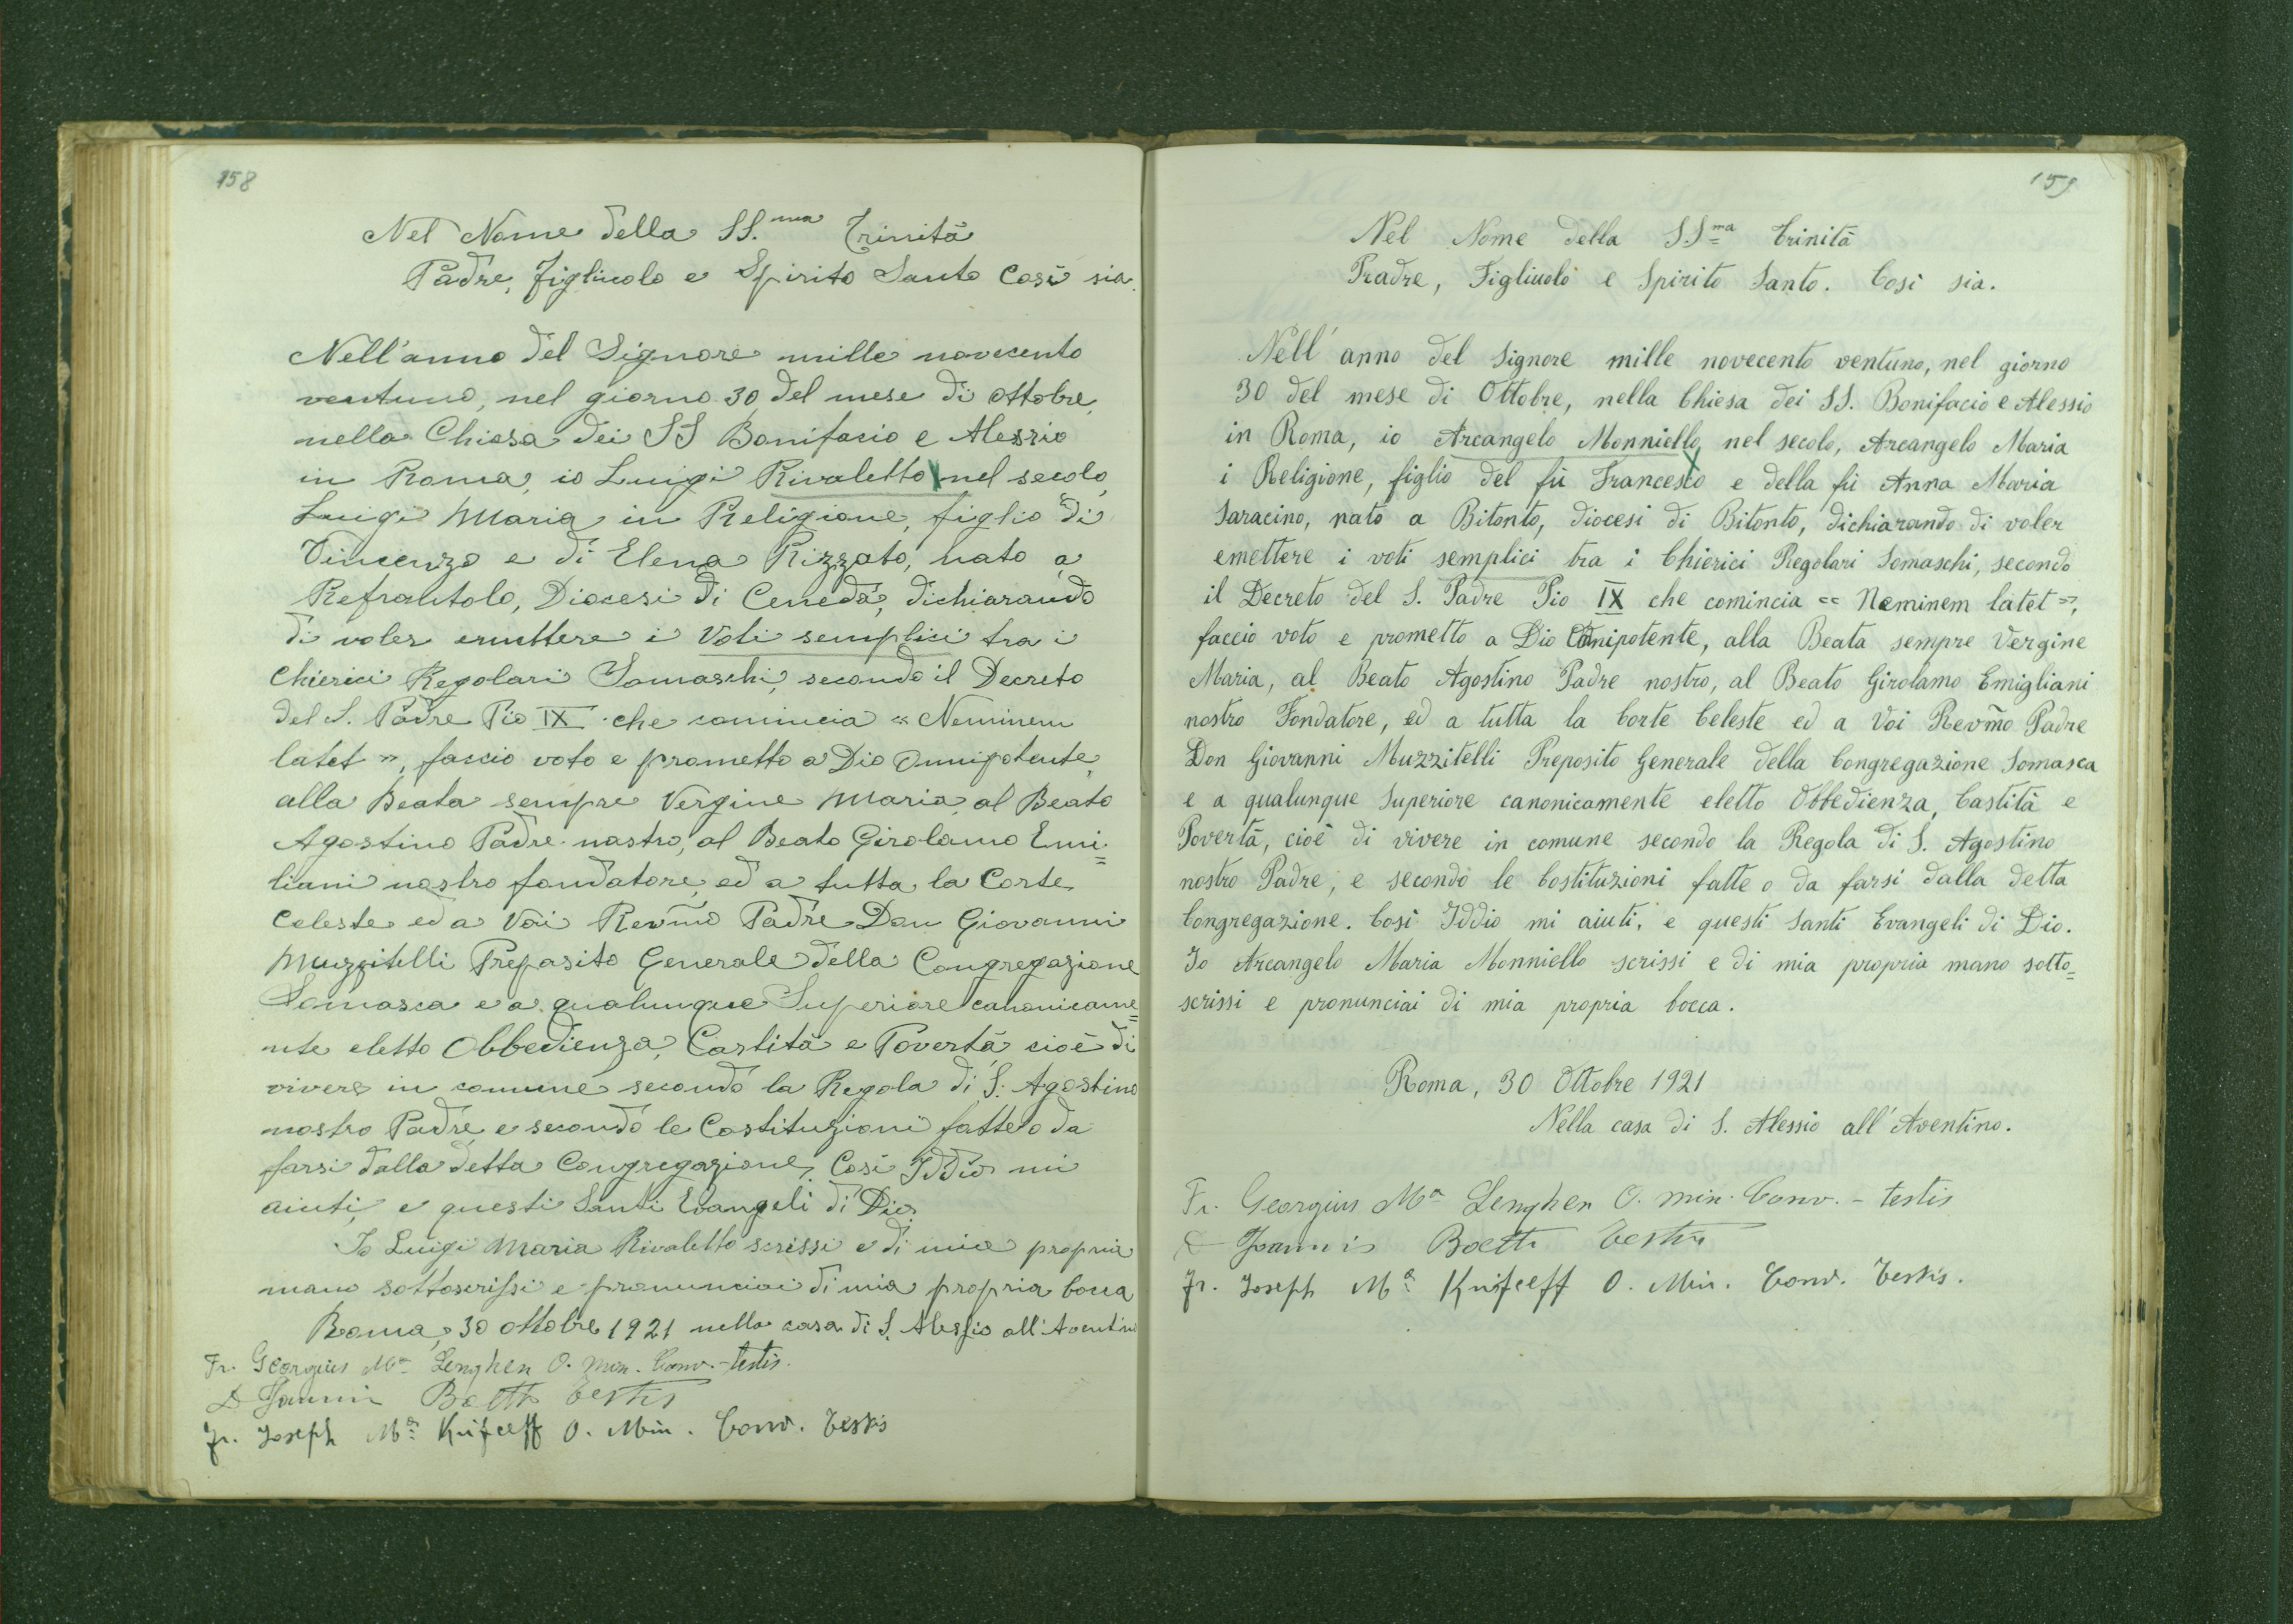 158
Nel Nome della SS.ma Trinità
Padre, Figliuolo e Spirito Santo Così sia.
Nell'anno del Signore mille novecento
ventuno, nel giorno 30 del mese di ottobre,
nella Chiesa dei SS Bonifacio e Alessio
in Roma, io Luigi Rivaletto nel secolo,
Luigi Maria in Religione, figlio di
Vincenzo e di Elena Rizzato, nato a
Refrontolo, Diocesi di Ceneda, dichiarando
di voler emettere i Voti semplici tra i
Chierici Regolari Somaschi, secondo il Decreto
del S. Padre Pio IX che comincia « Neminem
latet », faccio voto e prometto a Dio Onnipotente,
alla Beata sempre Vergine Maria, al Beato
Agostino Padre nostro, al Beato Girolamo Emi=
liani nostro fondatore, ed a tutta la Corte
Celeste ed a Voi Revmo Padre Don Giovanni
Muzzitelli Preposito Generale della Congregazione
Somasca e a qualunque Superiore canonicame=
nte eletto Obbedienza, Castità e Povertà cioè di
vivere in comune secondo la Regola di S. Agostino
nostro Padre, e secondo le Costituzioni fatte o da
farsi dalla detta Congregazione, Così Iddio mi
aiuti, e questi Santi Evangeli di Dio.
Io Luigi Maria Rivaletto scrissi e di mia propria
mano sottoscrissi e pronunciai di mia propria bocca
Roma, 30 ottobre 1921 nella casa di S. Alessio all'Aventino
Fr. Georgius Ma Lenghen O. Min. Conv. - testis.
D Joannis Boetti testis
Fr. Joseph Ma Knifeeff O. Min. Conv. Testis
159
Nel Nome della S.S.ma Trinità
Pradre, Figliuolo e Spirito Santo. Così sia.
Nell' anno del Signore mille novecento ventuno, nel giorno
30 del mese di Ottobre, nella Chiesa dei SS. Bonifacio e Alessio
in Roma, io Arcangelo Monniello, nel secolo, Arcangelo Maria
i Religione, figlio del fù Francesco e della fù Anna Maria
Saracino, nato a Bitonto, diocesi di Bitonto, dichiarando di voler
emettere i voti semplici tra i Chierici Regolari Somaschi, secondo
il Decreto del S. Padre Pio IX che comincia « Neminem latet »,
faccio voto e prometto a Dio Onnipotente, alla Beata sempre Vergine
Maria, al Beato Agostino Padre nostro, al Beato Girolamo Emigliani
nostro Fondatore, ed a tutta la Corte Celeste ed a Voi Revmo Padre
Don Giovanni Muzzitelli Preposito Generale della Congregazione Somasca
e a qualunque Superiore canonicamente eletto Obbedienza, Castità e
Povertà, cioè di vivere in comune secondo la Regola di S. Agostino
nostro Padre, e secondo le Costituzioni fatte o da farsi dalla detta
Congregazione. Così Iddio mi aiuti, e questi Santi Evangeli di Dio.
Io Arcangelo Maria Monniello scrissi e di mia propria mano sotto=
scrissi e pronunciai di mia propria bocca.
Roma, 30 Ottobre 1921
Nella casa di S. Alessio all'Aventino.
Fr. Georgius Ma Lenghen O. Min. Conv. - testis
D Joannis Boetti testis
Fr. Joseph Ma Knifeeff O. Min. Conv. Testis.